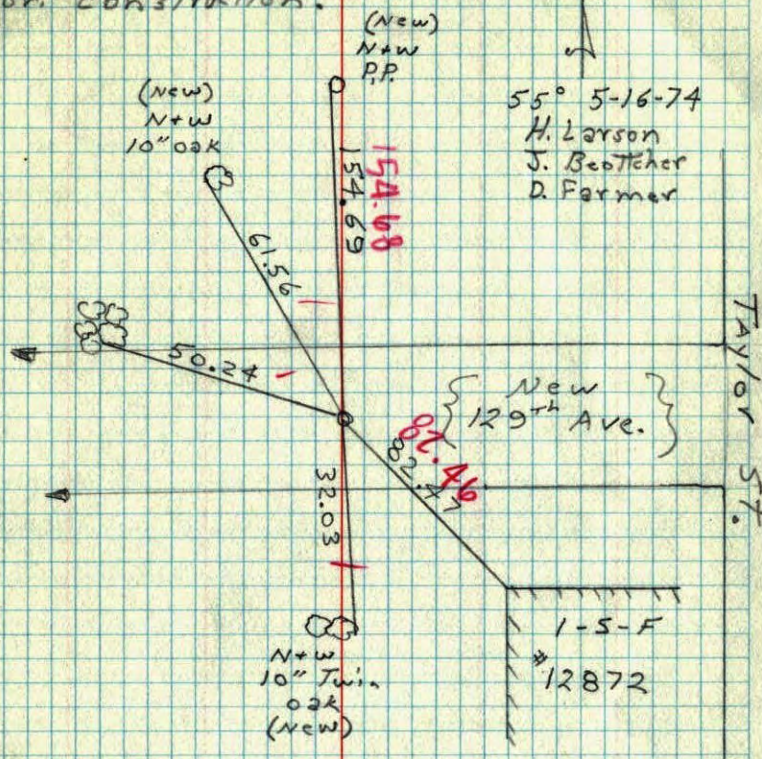 Construction.
(New)
N+W
P.P.
(New)
N+W
10" oak
55° 5-16-74
H. Larson
J. Beottcher
D. Farmer
154.69
154.68
61.56
50.24
New
129th Ave.
Taylor St.
82.46
82.47
32.03
1-S-F
#12872
N+W
10" Twin
oak
(New)